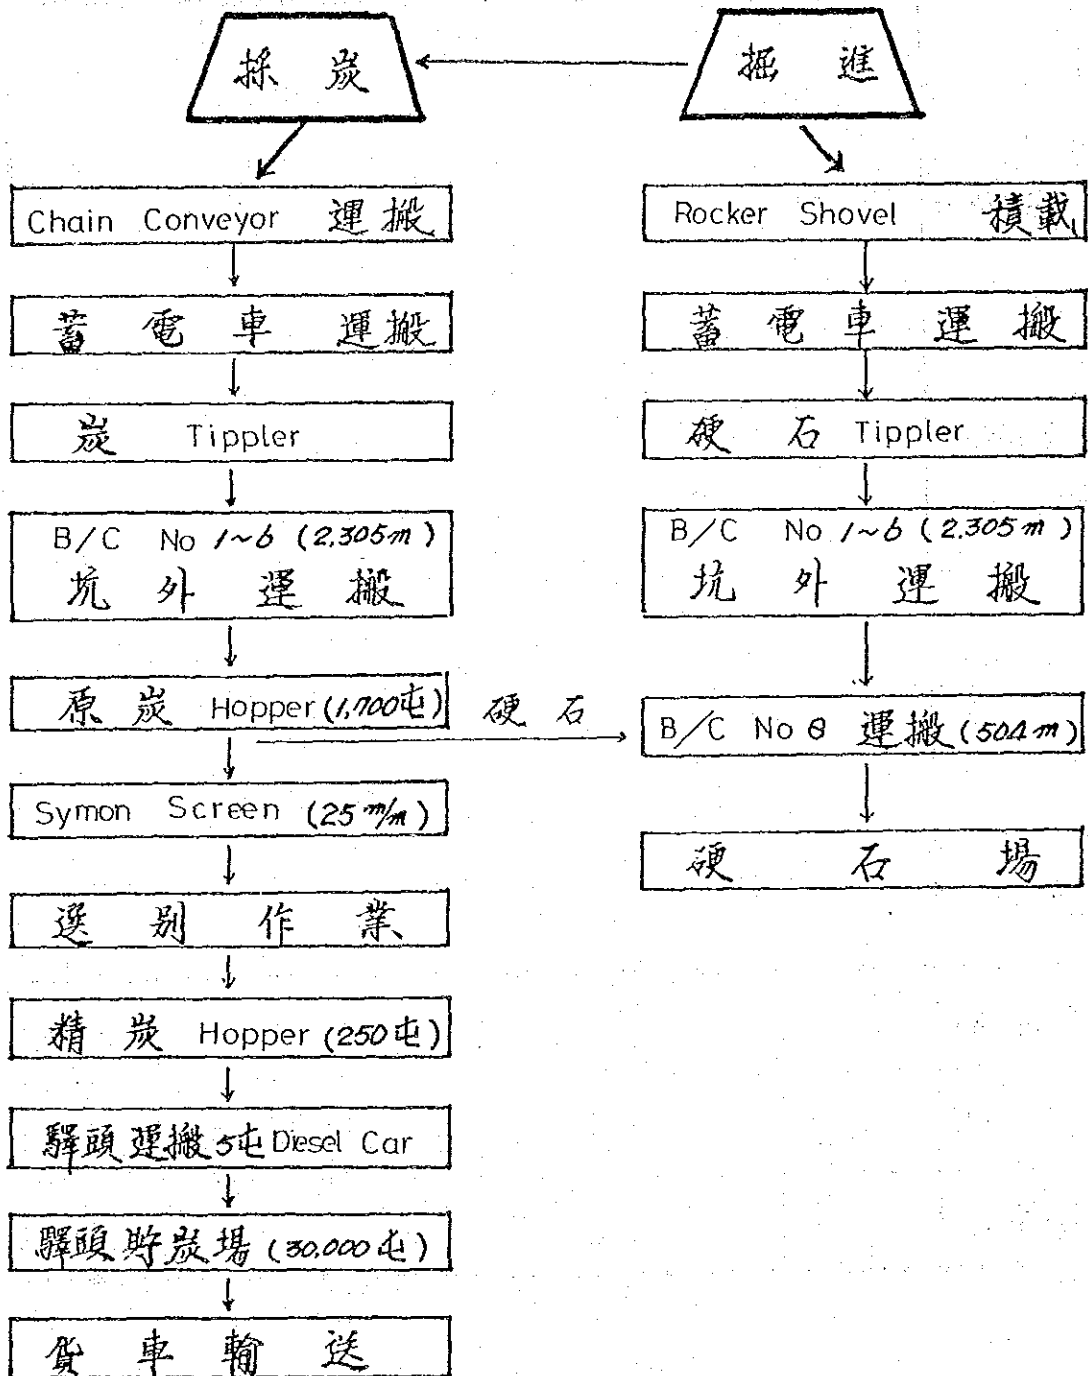 採炭
掘進
Chain Conveyor 運搬
蓄電車運搬
炭 Tippler
B/C No 1~6 (2,305m)
坑外運搬
原炭 Hopper (1,700屯)
硬石
Symon Screen (25 m/m)
選別作業
精炭 Hopper (250屯)
驛頭運搬 5屯 Diesel Car
驛頭貯炭場 (30,000屯)
貨車輸送
Rocker Shovel 積載
蓄電車運搬
硬石 Tippler
B/C No 1~6 (2,305m)
坑外運搬
B/C No 8 運搬 (504m)
硬石場